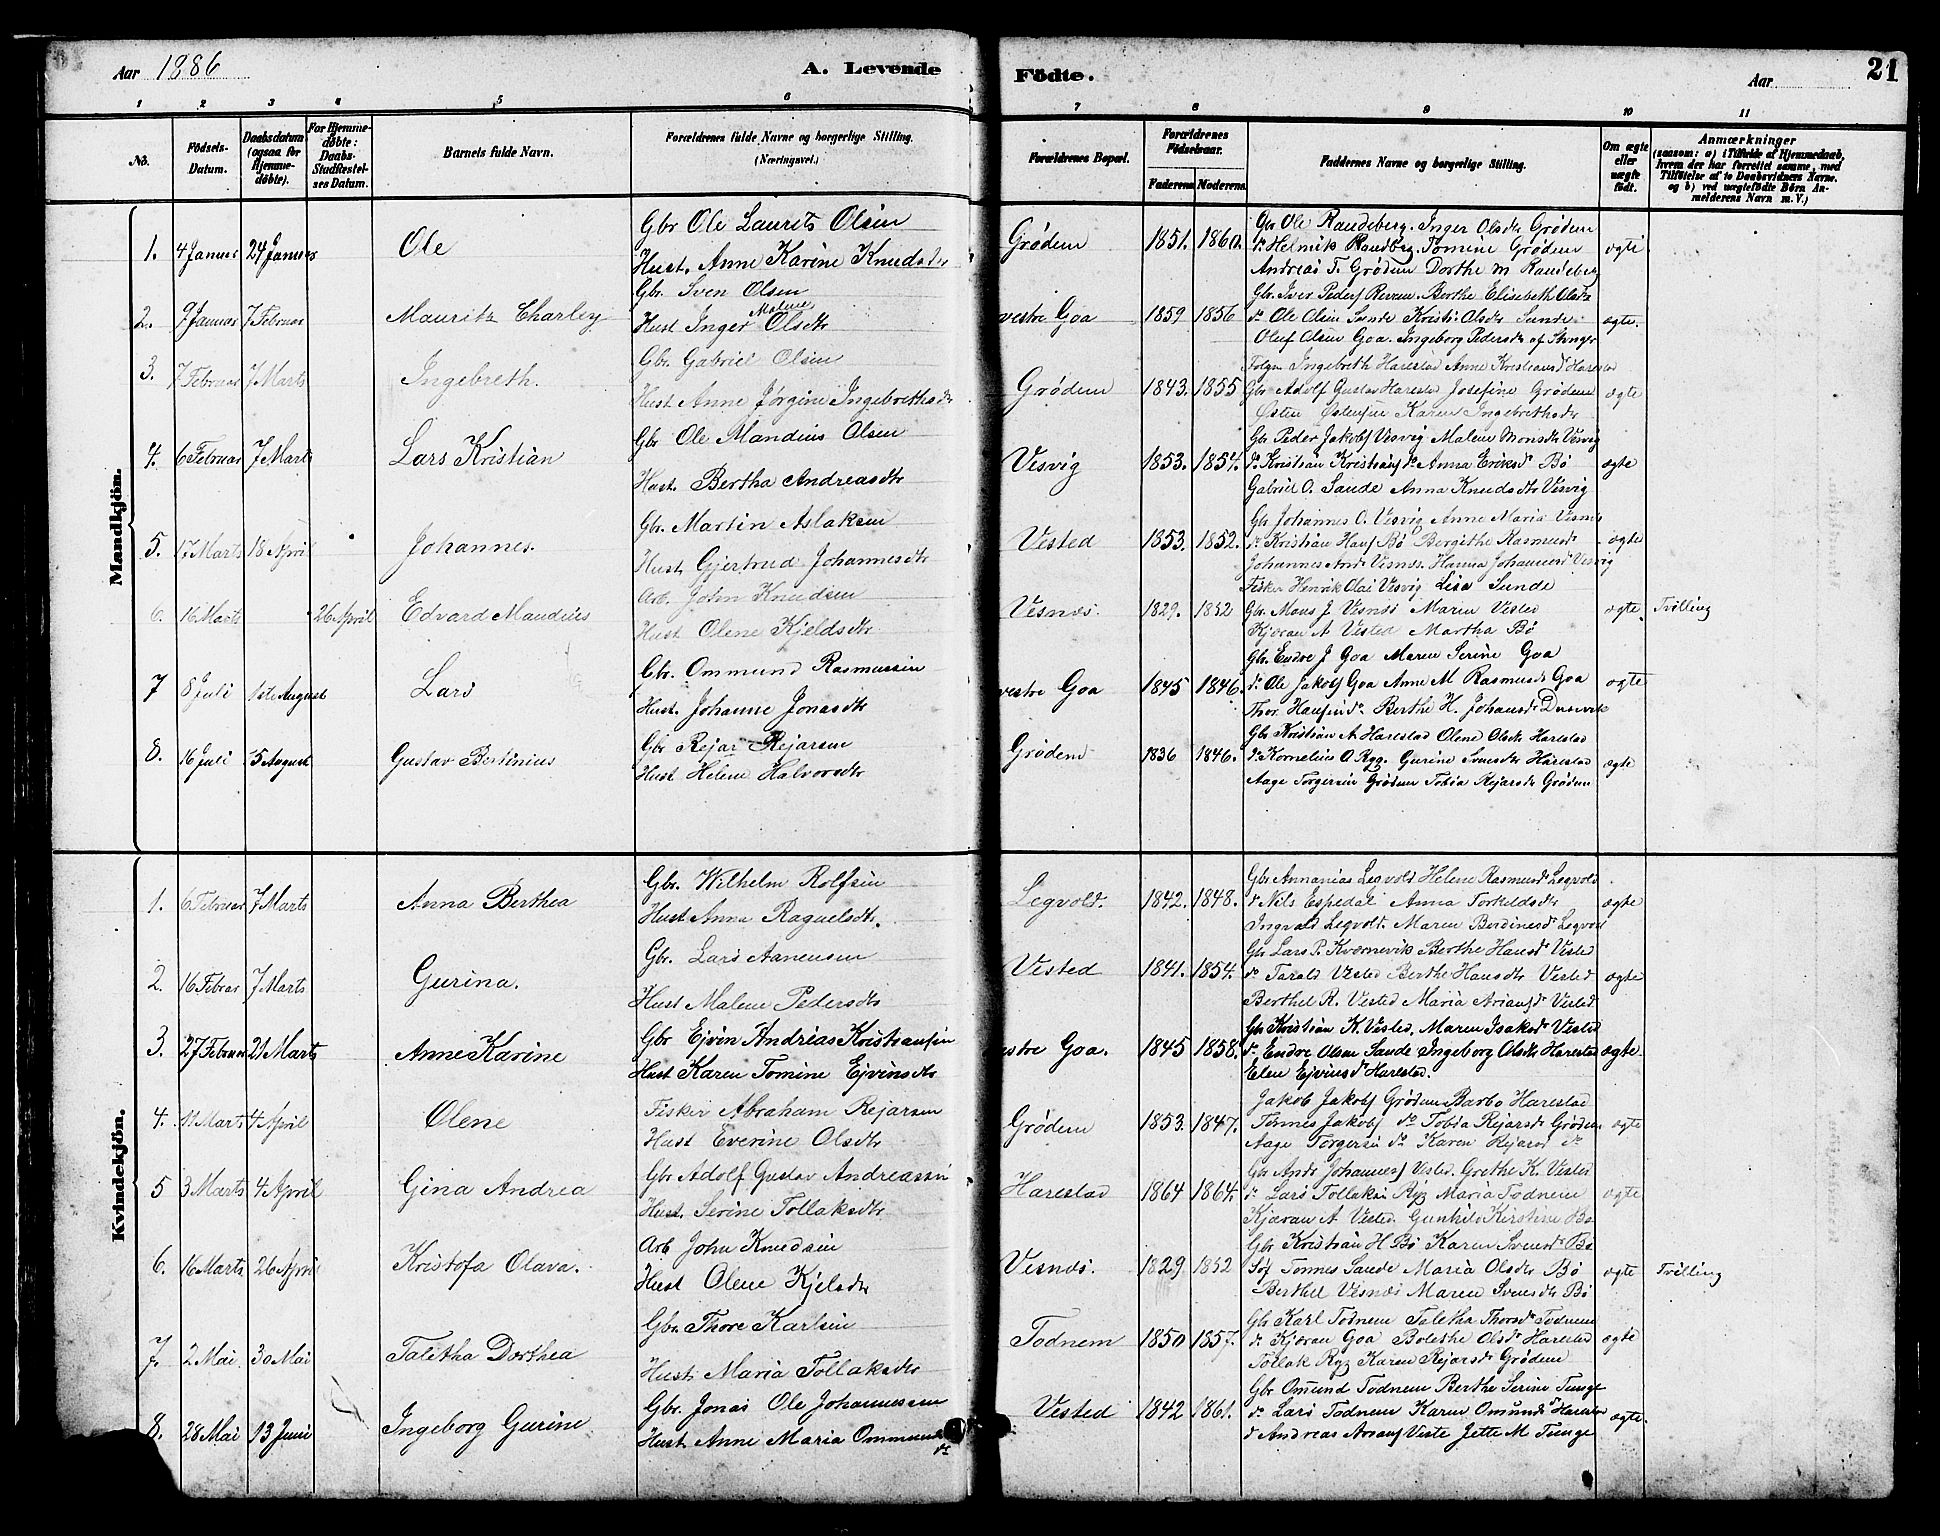 Aar 1886 A. Levende Födte. Aar 21
1 2 3 4 5 6 7 8 9 10 11
No. Födsels-Datum. Daabsdatum (ogsaa for Hjemme-döbte). For Hjemme-döbte: Daabs-Stadfæstel-ses Datum. Barnets fulde Navn. Forældrenes fulde Navne og borgerlige Stilling. (Næringsvei.) Forældrenes Bopæl. Forældrenes Födselsaar. Faderens Moderens Faddernes Navne og borgerlige Stilling. Om ægte eller uægte födt. Anmærkninger (saasom: a) i Tilfælde af Hjemmedaab, hvem der har forrettet samme, med Tilföielse af to Daabsvidners Navne, og b) ved uægtefödte Börn An-melderens Navn m. V.)
Mandkjön.
1. 4 Januar 24 Januar Ole
Gbr Ole Laurits Olsen
Hust. Anne Karine Knudsdr
Grødem 1851. 1860.
Gbr Ole Randeberg. Inger Olsdr Grødem
do Helmik Randbrg. Tomine Grødem
Andreas T. Grødem Dorthe M Randeberg
ægte
2. 9 Januar 7 Februar Mauritz Charley
Gbr. Sven Olsen
Hust Inger Malene Olsdtr
vestre Goa 1859 1856
Gbr. Iver Peders Revem. Berthe Elisebeth Olsdr
do Ole Olsen Sunde Kristi Olsdtr Sunde
Oluf Olsen Goa. Ingeborg Pedersdr af Stvngr
ægte.
3. 7 Februar 7 Marts Ingebreth.
Gbr. Gabriel Olsen
Hust Anne Jørgine Ingebrethsdr
Grødem 1843. 1855
Ingebreth Harestad Anne Kristiansd Harestad
Gbr Adolf Gustav Harestad Josefine Grødem
Østen Østensen Karen Ingebrethsdr
ægte
4. 6 Februar 7 Marts Lars Kristian
Gbr Ole Mandius Olsen
Hust. Bertha Andreasdtr
Vesvig 1853. 1854.
Gbr Peder Jakobs Vesvig Malene Monsdtr Vesvig
do Kristian Kristians do Anna Eriksdr Bø
Gabriel O. Sande Anna Knudsdtr Vesvig
ægte
5. 17 Marts 18 April Johannes.
Gbr. Martin Aslaksen
Hust Gjertrud Johannesdtr
Vested 1853. 1852.
Gbr Johannes O. Vesvig Anne Maria Vesnes
do Kristian Hans Bø Bergithe Rasmusdr
Johannes Andr Vesnes. Hanna Johannesd Vesvig
ægte
6. 16 Marts 26 April Edvard Mandius
Arb. John Knudsen
Hust Olene Kjeldsdtr
Vesnæs. 1829. 1852
Fisker Henrik Olai Vesvig Lisa Sunde
Gbr. Mons J. Vesnæs Maren Vested
Kjøran A Vested Martha Bø
ægte Tvilling
7 8 Juli 1ste August Lars
Gbr. Ommund Rasmussen
Hust. Johanne Jonasdtr
vestre Goa 1845 1846.
Gbr. Endre J Goa Maren Serine Goa
do Ole Jakobs Goa Anne M Rasmusdr Goa
Thor Hansen do Berthe H. Johansdr Dusevik
ægte
8. 16 Juli 5 August Gustav Bertinius
Gbr Rejar Rejarsen
Hust Helene Halvorsdtr
Grødem 1836 1846.
Gbr Kristian A Harestad Olene Olsdtr Harestad
do Kornelius O Ryg. Gurine Svensdtr Harestad
Aage Torgersen Grødem Tobia Rejarsdr Grødem
ægte
Kvindekjön.
1. 6 Februar 7 Marts Anna Berthea
Gbr. Wilhelm Rolfsen
Hust Anna Raguelsdtr.
Legvold. 1842. 1848.
Gbr Annanias Legvold Helene Rasmusd Legvold
do Nils Espedal Anna Torkeldsdtr
Ingvald Legvold. Maren Berdinesd Legvold
ægte
2. 16 Febrar 7 Marts Gurina.
Gbr. Lars Aanensen
Hust Malene Pedersdtr
Vested 1841. 1854.
Gbr Lars P. Kvernevik Berthe Hansdr Vested
do Tarald Vested Berthe Hansdtr Vested
Berthel R. Vested Maria Ariansdr Vested
ægte
3. 27 Februar 21 Marts Anne Karine
Gbr Ejvin Andreas Kristiansen
Hust Karen Tomine Ejvinsdtr
vestre Goa. 1845 1858.
Gbr Kristian K. Vested. Maren Isaksdr Vested
do Endre Olsen Sande Ingeborg Olsdtr Harestad
Elen Ejvinsdr Harestad.
ægte
4. 11 Marts 4 April Olene
Fisker Abraham Rejarsen
Hust Everine Olsdtr
Grødem 1853. 1847.
Jakob Jakobs Grødem Barbo Harestad
Tønnes Jakobs do Tobia Rejarsdr Grødem
Aage Torgersen do Karen Rejarsd do
ægte
5 3 Marts 4 April Gina Andrea
Gbr Adolf Gustav Andreassen
Hust. Serine Tollaksdtr
Harestad 1864 1864.
Gbr Andr Johannes Vested. Grethe K. Vested
do Lars Tollaksen Ryg Maria Todnem
Kjøran A Vested. Gunhild Kirstine Bø
ægte
6. 16 Marts 26 April Kristofa Olava.
Arb John Knudsen
Hust Olene Kjelsdtr
Vesnæs. 1829 1852
Gbr Kristian H Bø Karen Svensdr Bø
Søf Tønnes Sande Maria Olsdtr Bø
Berthel Vesnæs Maren Svensdtr Bø
ægte Tvilling
7. 2 Mai 30 Mai Talitha Dorthea
Gbr. Thore Karlsen
Hust Maria Tollaksdtr
Todnem 1850 1857.
Gbr Karl Todnem Taletha Thorsdr Todnem
do Kjøran Goa Bolethe Olsdr Harestad
Tollak Ryg Karen Rejarsdr Grødem
ægte
8. 28 Mai 13 Juni Ingeborg Gurine
Gbr. Jonas Ole Johannessen
Hust Anne Maria Ommundsdr
Vested 1842 1861.
Gbr Omund Todnem Berthe Serine Tunge
do Lars Todnem Karen Omundsd Harestad
do Andreas Arians Veste Jette M Tunge
ægte